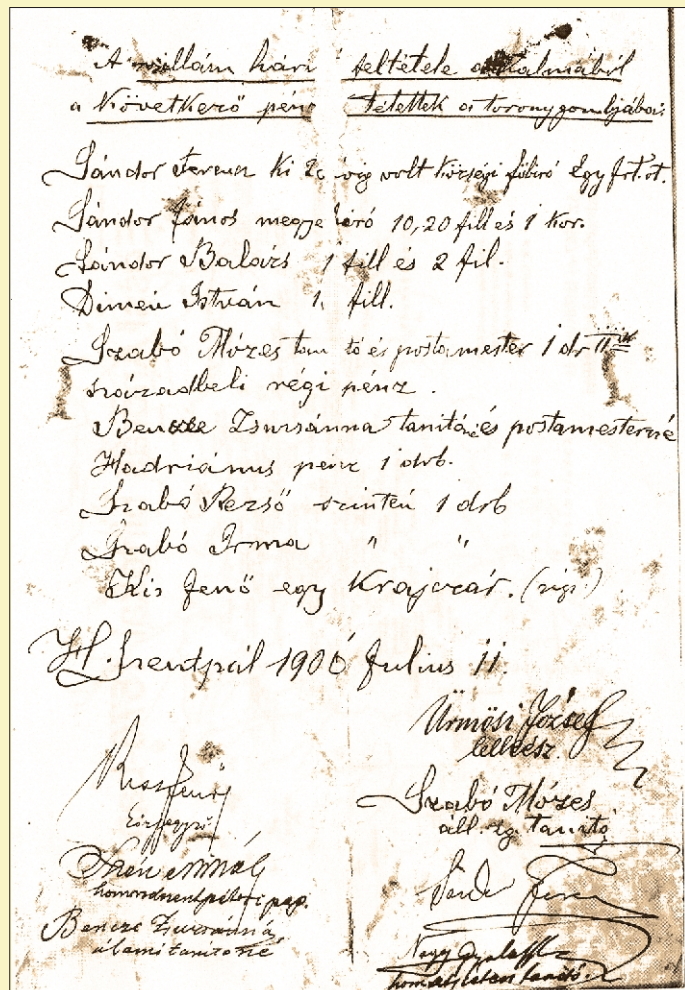 A villám hár feltétele alkalmából
a következő pénz tétettek a torony gombjába:
Sándor Ferencz ki 20 évig volt községi főbiró Egy frt.ot.
Sándor János megye biró 10, 20 fill és 1 kor.
Sándor Balázs 1 fill és 2 fil.
Dimén István 1 fill.
Szabó Mózes tan tó és postamester 1 dr II ik
századbeli régi pénz.
Bencze Zsuzsánna tanitónő és postamesterné
Hadriánus pénz 1 drb.
Szabó Rezső szintén 1 drb
Szabó Irma " "
Kis Jenő egy Krajczár. (régi)
H. Szentpál 1906 Julius 11.
Ürmösi József
lelkész.
Kiss Jenő
körjegyző
Szabó Mózes
áll. ig. tanító
Mihály
homoródszentpéteri pap.
Sándor Ferencz
Bencze Zsuzsánna
állami tanitónő
Nagy Gyula
tanító